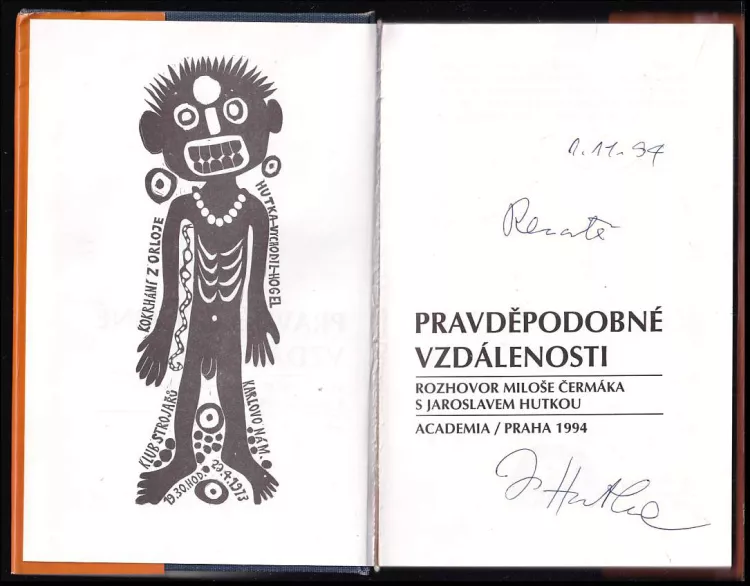 KOKRHÁNÍ Z ORLOJE
HUTKA-VYCHODIL-HOGEL
KLUB STROJAŘŮ
KARLOVO NÁM.
19.30.HOD. 23.4.1973
1.11.94
Renatě
PRAVDĚPODOBNÉ
VZDÁLENOSTI
ROZHOVOR MILOŠE ČERMÁKA
S JAROSLAVEM HUTKOU
ACADEMIA / PRAHA 1994
J Hutka